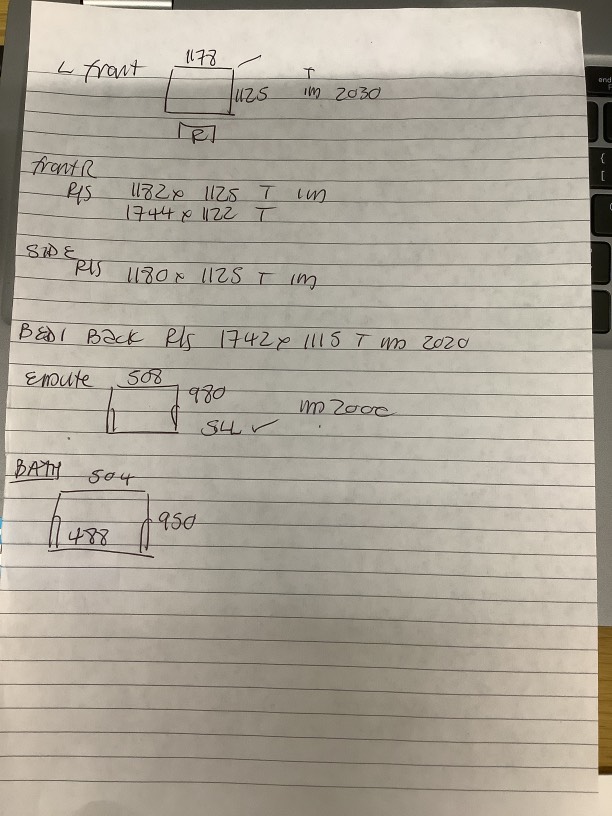 L front 1178 T
1125 im 2030
R
front R
R/S 1182 x 1125 T im
1744 x 1122 T
SIDE
R/S 1180 x 1125 T im
BED 1 Back R/S 1742 x 1115 T im 2020
Ensuite 508
980 im 2000
SLL ✓
BATH 504
488 950